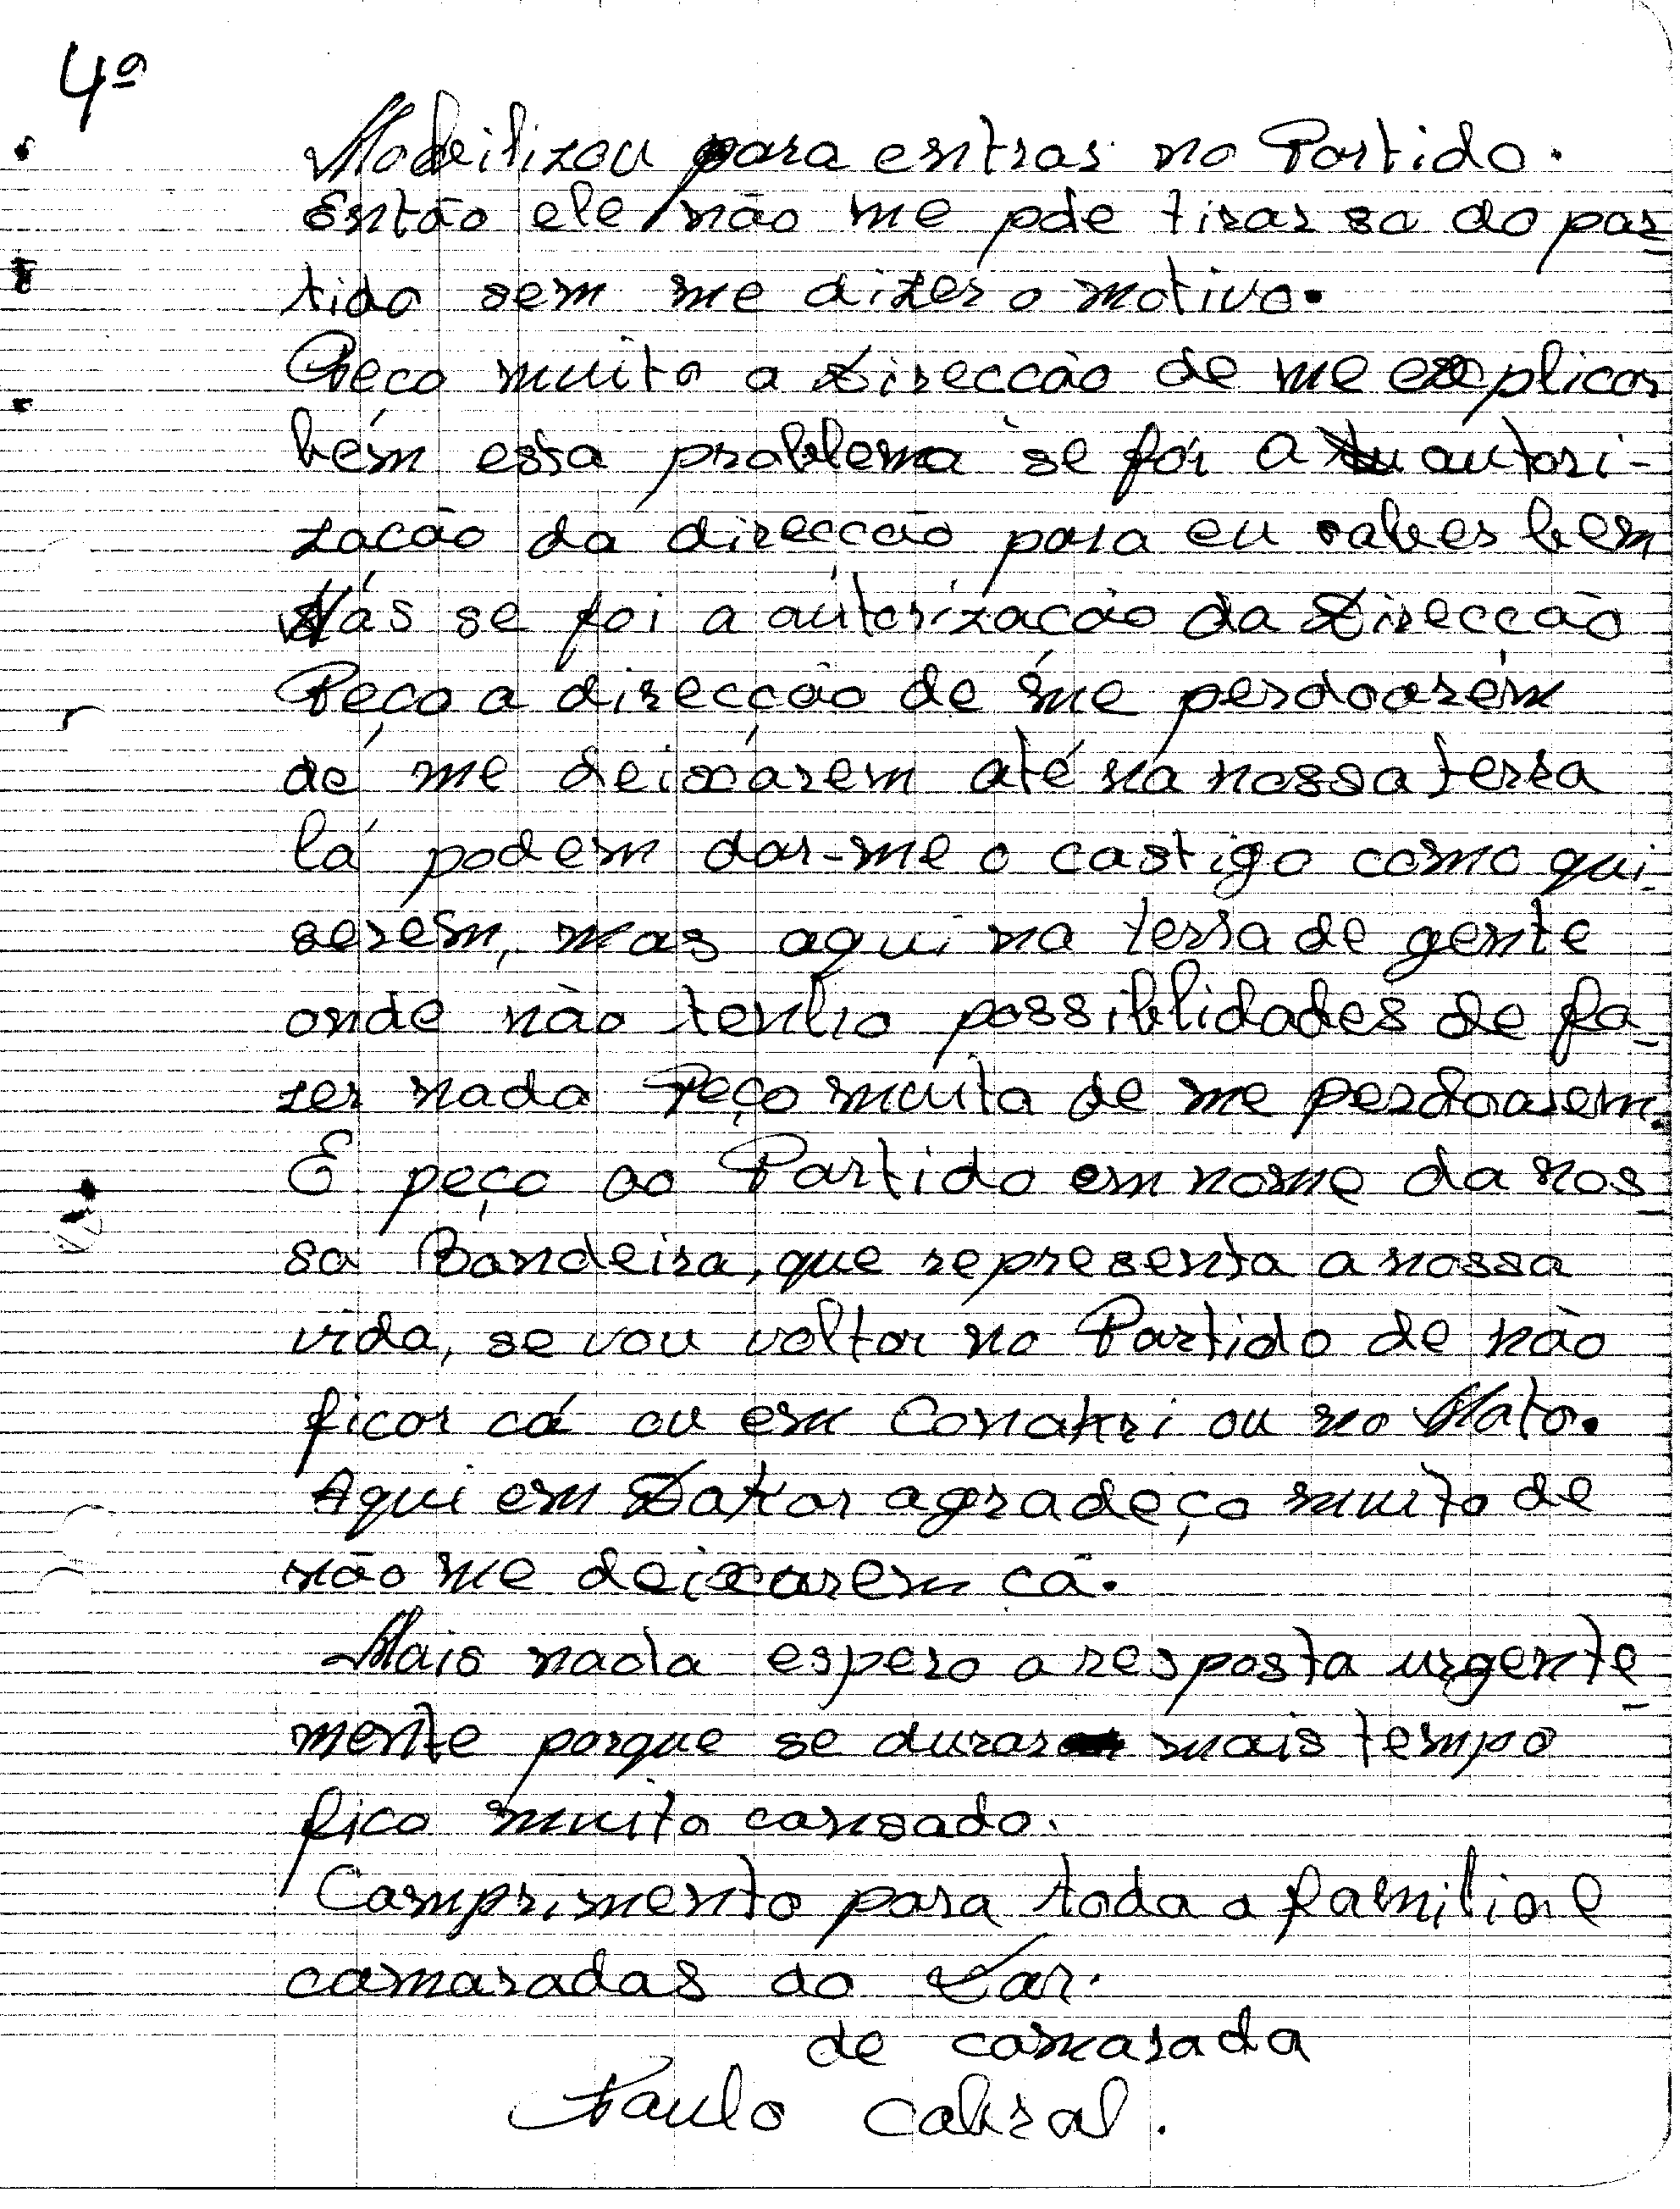 4º
Mobilizou para entrar no Partido.
Então ele não me pode tirar so do par-
tido sem me dizer o motivo.
Peço muito a Direcção de me explicar
bem essa problema se foi a autori-
zacão da direcção para eu saber bem
Más se foi a autorizacão da Direcção
Peço a direcção de me perdoarem
de me deixarem até na nossa terra
lá podem dar-me o castigo como qui-
serem, mas aqui na terra de gente
onde não tenho possiblidades de fa-
zer nada Peço muito de me perdoarem.
E peço ao Partido em nome da nos-
sa Bandeira, que representa a nossa
vida, se vou voltar no Partido de não
ficar cá ou em Conakri ou no Mato.
Aqui em Dakar agradeço muito de
não me deixarem cá.
Mais nada espero a resposta urgente-
mente porque se durar mais tempo
fico muito cansado.
Comprimento para toda a familia e
camaradas do Lar.
de camarada
Paulo Cabral.